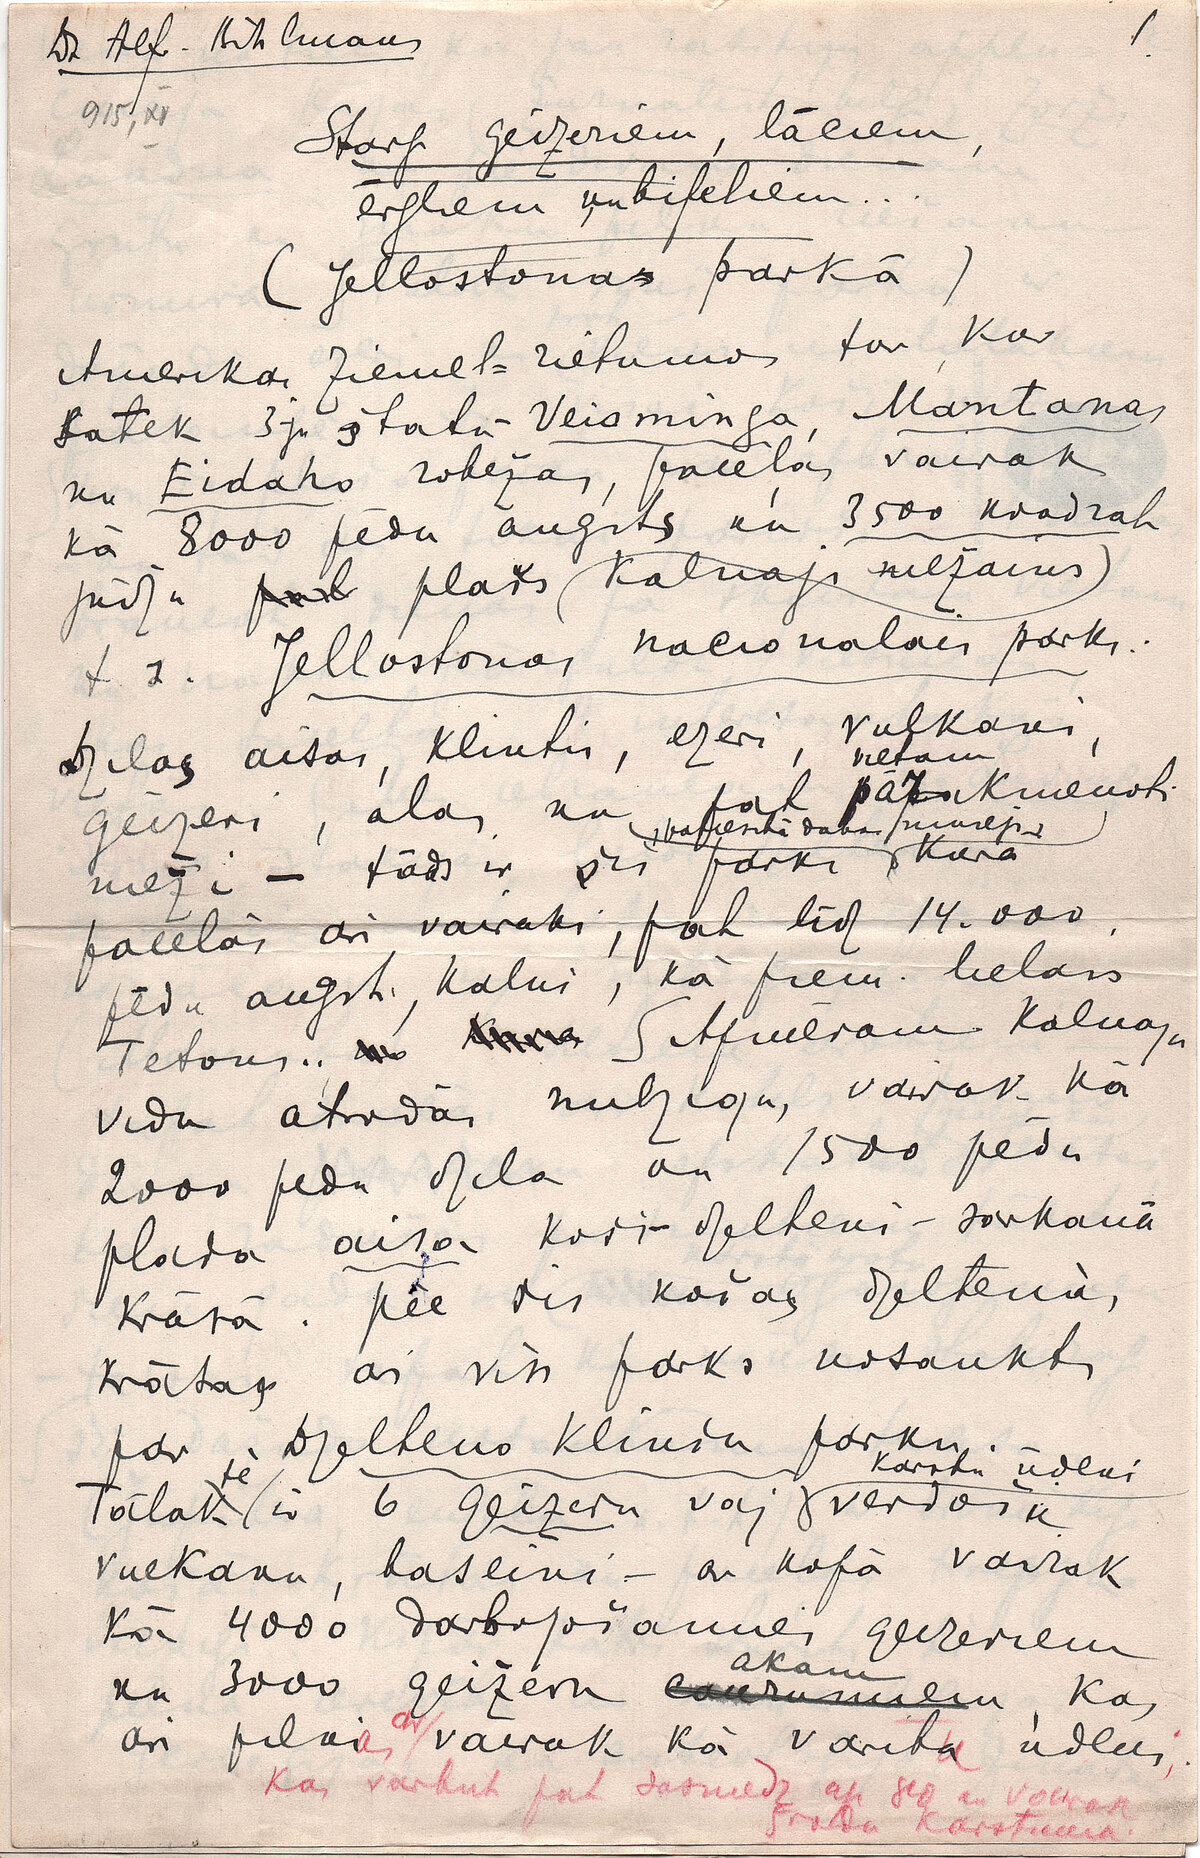 Dr Alf. Bihlmans
1.
915, XI
Starp geizeriem, lāčiem,
ērgliem un bifeļiem...
(Jellostonas parkā)
Amerikas ziemeļ-rietumos tur, kur
satek 3ju štatu - Veiominga, Montanas
un Eidaho robežas, pacelās vairak
kā 8000 pēdu augsts un 3500 kvadrat
judžu plašs (kalnajs mežains)
t. s. Jellostonas nacionalais parks.
Dzelas aisas, klintis, ezeri, vulkani,
retam
geizeri, alas un pat pārakmeņoti
patiesībā dabas muzejs
meži – tāds ir šis parks kurā
pacelās ari vairaki, pat līdz 14.000
pēdu augsti, kalni, kā piem. lielais
Tetons. Apmēram kalnaju
vidu atrodās milzigu, vairak kā
2000 pedu dzela un 1500 pēdu
plada aisa koši-dzelteni-sarkanā
krāsā. pēc šis košas dzeltenās
krāsas ari viss parks nosaukts
par Dzelteno klinšu parku.
karstu ūdeni
Tālak te ir 6 geizeru vaj verdošu
vulkanu, baseini – ar kopā vairak
kā 4000 darbojošamies geizeriem
akam
un 3000 geizeru kas
ari pilnas ar vairak kā varita ūdeni,
Kas varbut pat sasniedz ap 80 un vairak
gradu karstuma.